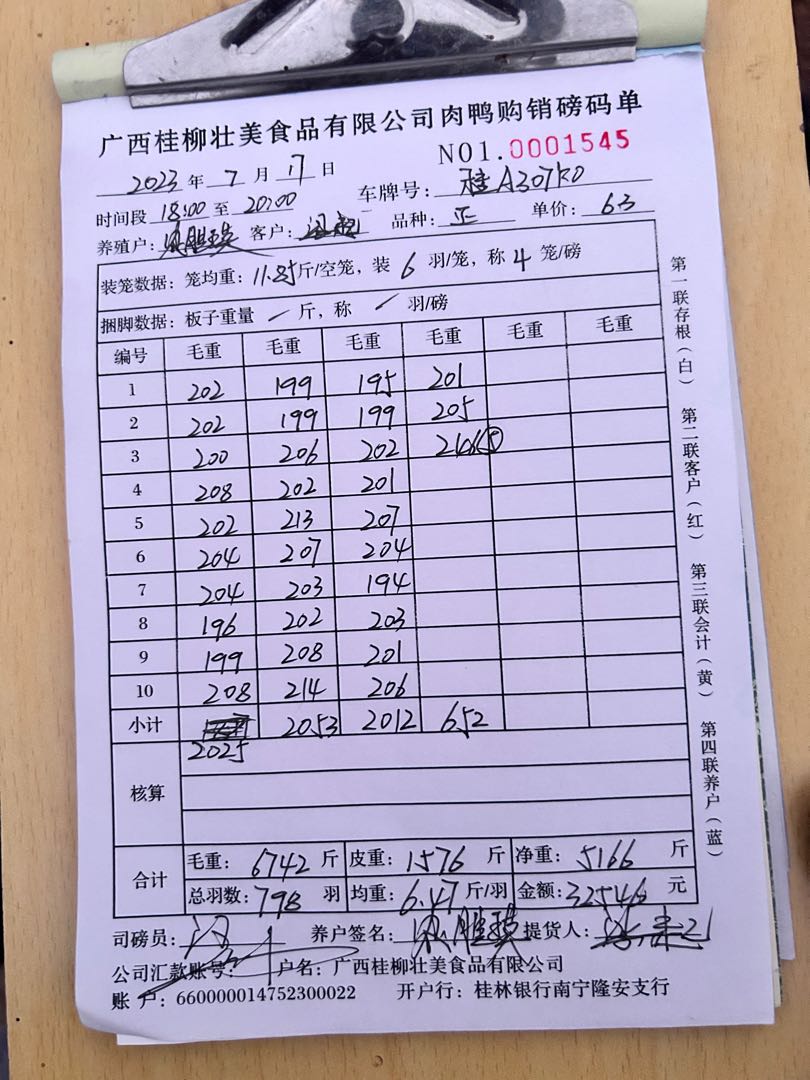 广西桂柳壮美食品有限公司肉鸭购销磅码单
NO1.0001545
2023 年 7 月 17 日 车牌号: 桂A307K0
时间段 18:00 至 20:00 品种: 正 单价: 6.3
养殖户: 客户:
装笼数据: 笼均重: 11.85斤/空笼, 装 6 羽/笼, 称 4 笼/磅
捆脚数据: 板子重量 / 斤, 称 / 羽/磅
编号 毛重 毛重 毛重 毛重 毛重 毛重
1 202 199 195 201
2 202 199 199 205
3 200 206 202 246⑤
4 208 202 201
5 202 213 207
6 204 207 204
7 204 203 194
8 196 202 203
9 199 208 201
10 208 214 206
小计 2053 2012 652
2025
核算
合计 毛重: 6742 斤 皮重: 1576 斤 净重: 5166 斤
总羽数: 798 羽 均重: 6.47 斤/羽 金额: 32546 元
司磅员: 养户签名: 提货人:
公司汇款账号: 户名: 广西桂柳壮美食品有限公司
账 户: 660000014752300022 开户行: 桂林银行南宁隆安支行
第一联存根(白) 第二联客户(红) 第三联会计(黄) 第四联养户(蓝)